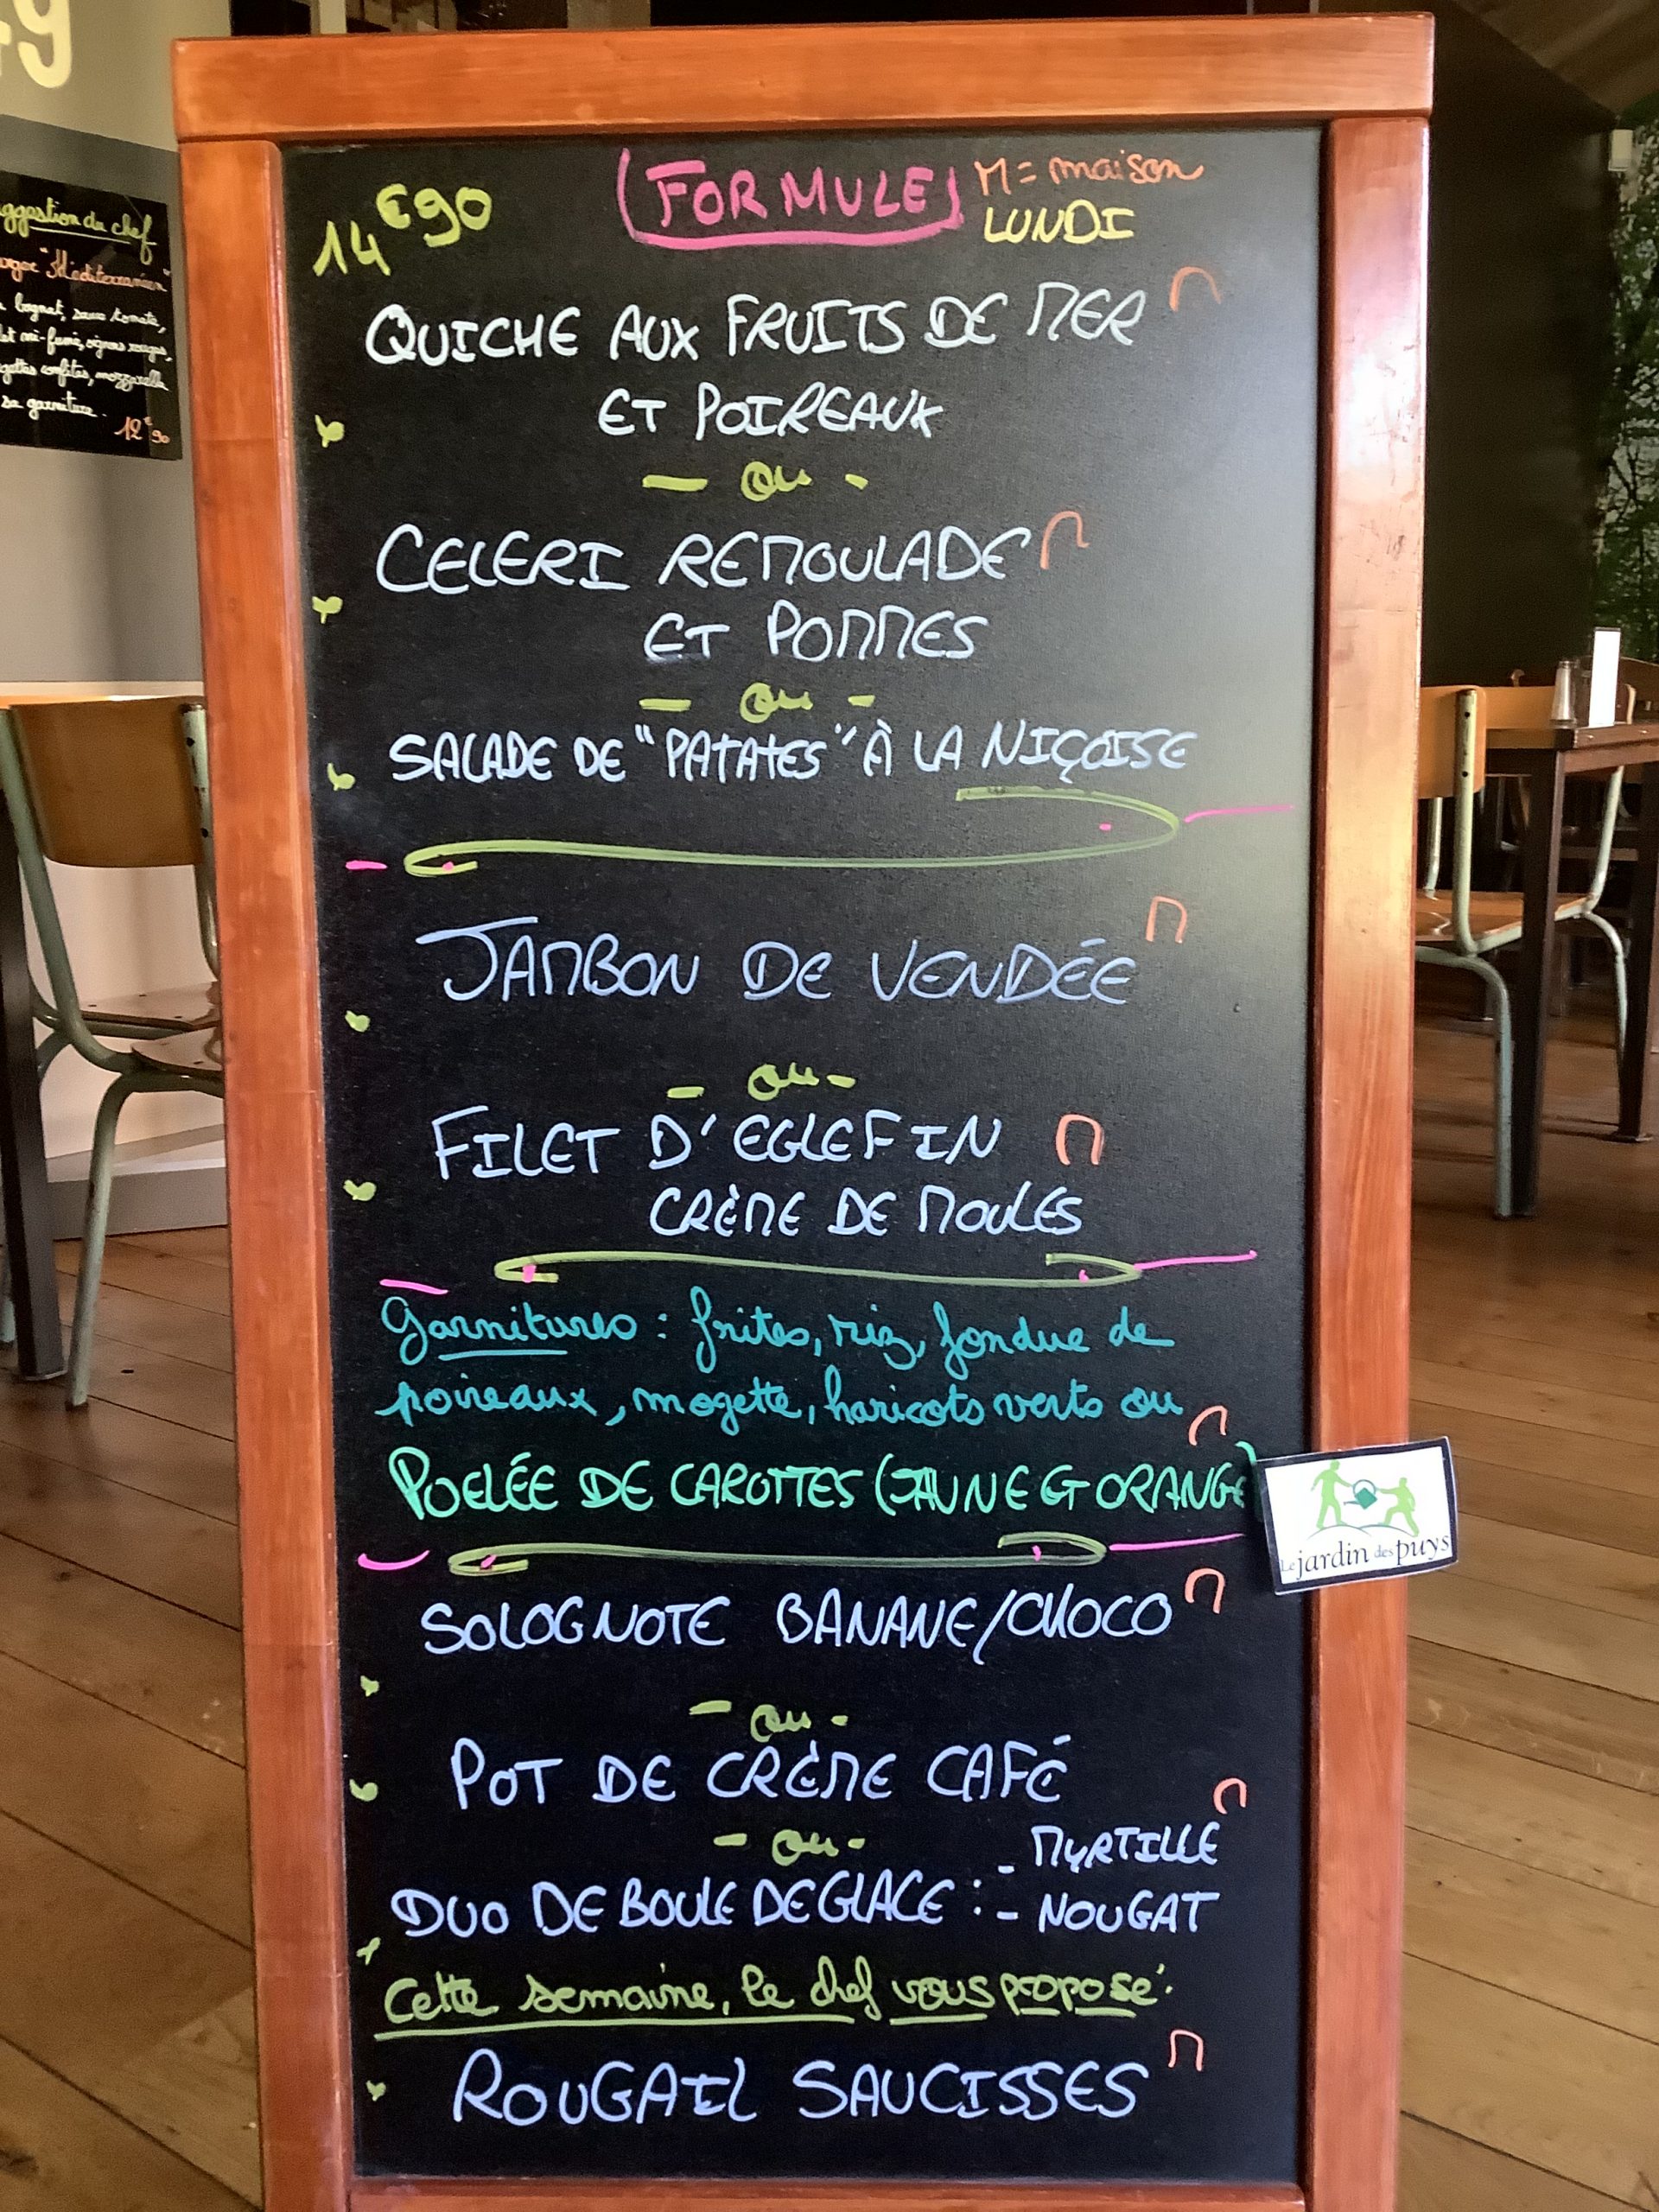 49
ggestion du chef
"Méditerranéen"
bagnat, sauce tomate,
mi-fumé, oignons rouges,
confites, mozzarella
sa garniture.
12€90
14€90
FORMULE
M = maison
LUNDI
QUICHE AUX FRUITS DE MER M
ET POIREAUX
- ou -
CELERI REMOULADE M
ET POMMES
- ou -
SALADE DE "PATATES" À LA NIÇOISE
JAMBON DE VENDÉE M
- ou -
FILET D'EGLEFIN M
CRÈME DE MOULES
Garnitures : frites, riz, fondue de
poireaux, mogette, haricots verts ou M
POELÉE DE CAROTTES (JAUNE ET ORANGE)
Le jardin des puys
SOLOGNOTE BANANE/CHOCO M
- ou -
POT DE CRÈME CAFÉ
- ou -
- MYRTILLE M
DUO DE BOULE DE GLACE : - NOUGAT
Cette semaine, le chef vous propose :
ROUGAIL SAUCISSES M